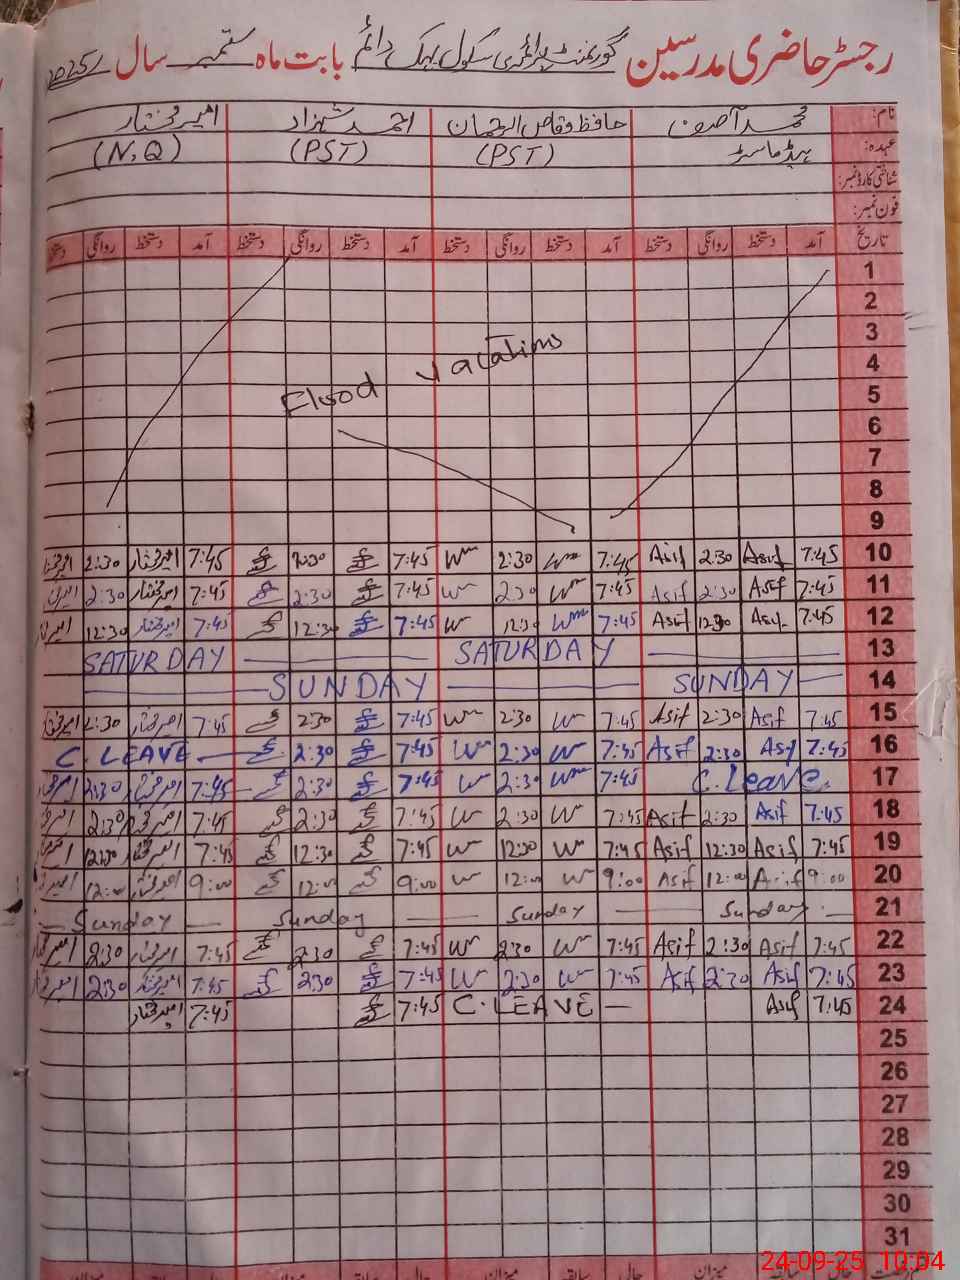 رجسٹر حاضری مدرسین گورنمنٹ پرائمری سکول بہک دائم بابت ماہ ستمبر سال 2025ء
نام: محمد آصف حافظ وقاص الرحمان احمد شہزاد امیر مختار
عہدہ: ہیڈ ماسٹر (PST) (PST) (N,Q)
شناختی کارڈ نمبر:
فون نمبر:
تاریخ آمد دستخط روانگی دستخط آمد دستخط روانگی دستخط آمد دستخط روانگی دستخط آمد دستخط روانگی
1
2
3
4
Flood vacations
5
6
7
8
9
10 7:45 Asif 2:30 Asif 7:45 2:30 7:45 2:30 7:45 امیر مختار 2:30
11 7:45 Asif 2:30 Asif 7:45 2:30 7:45 2:30 7:45 امیر مختار 2:30
12 7:45 Asif 12:30 Asif 7:45 12:30 7:45 12:30 7:45 امیر مختار 12:30
13 SATURDAY SATURDAY
14 SUNDAY SUNDAY
15 7:45 Asif 2:30 Asif 7:45 2:30 7:45 2:30 7:45 امیر مختار 2:30
16 7:45 Asif 2:30 Asif 7:45 2:30 7:45 2:30 C. LEAVE
17 C. Leave. 7:45 2:30 7:45 2:30 7:45 امیر مختار 2:30
18 7:45 Asif 2:30 Asif 7:45 2:30 7:45 2:30 7:45 امیر مختار 2:30
19 7:45 Asif 12:30 Asif 7:45 12:30 7:45 12:30 7:45 امیر مختار 12:30
20 9:00 Asif 12:00 Asif 9:00 12:00 9:00 12:00 9:00 امیر مختار 12:00
21 Sunday Sunday Sunday Sunday
22 7:45 Asif 2:30 Asif 7:45 2:30 7:45 2:30 7:45 امیر مختار 2:30
23 7:45 Asif 2:30 Asif 7:45 2:30 7:45 2:30 7:45 امیر مختار 2:30
24 7:45 Asif C. LEAVE 7:45 7:45 امیر مختار
25
26
27
28
29
30
31
24-09-25 10:04